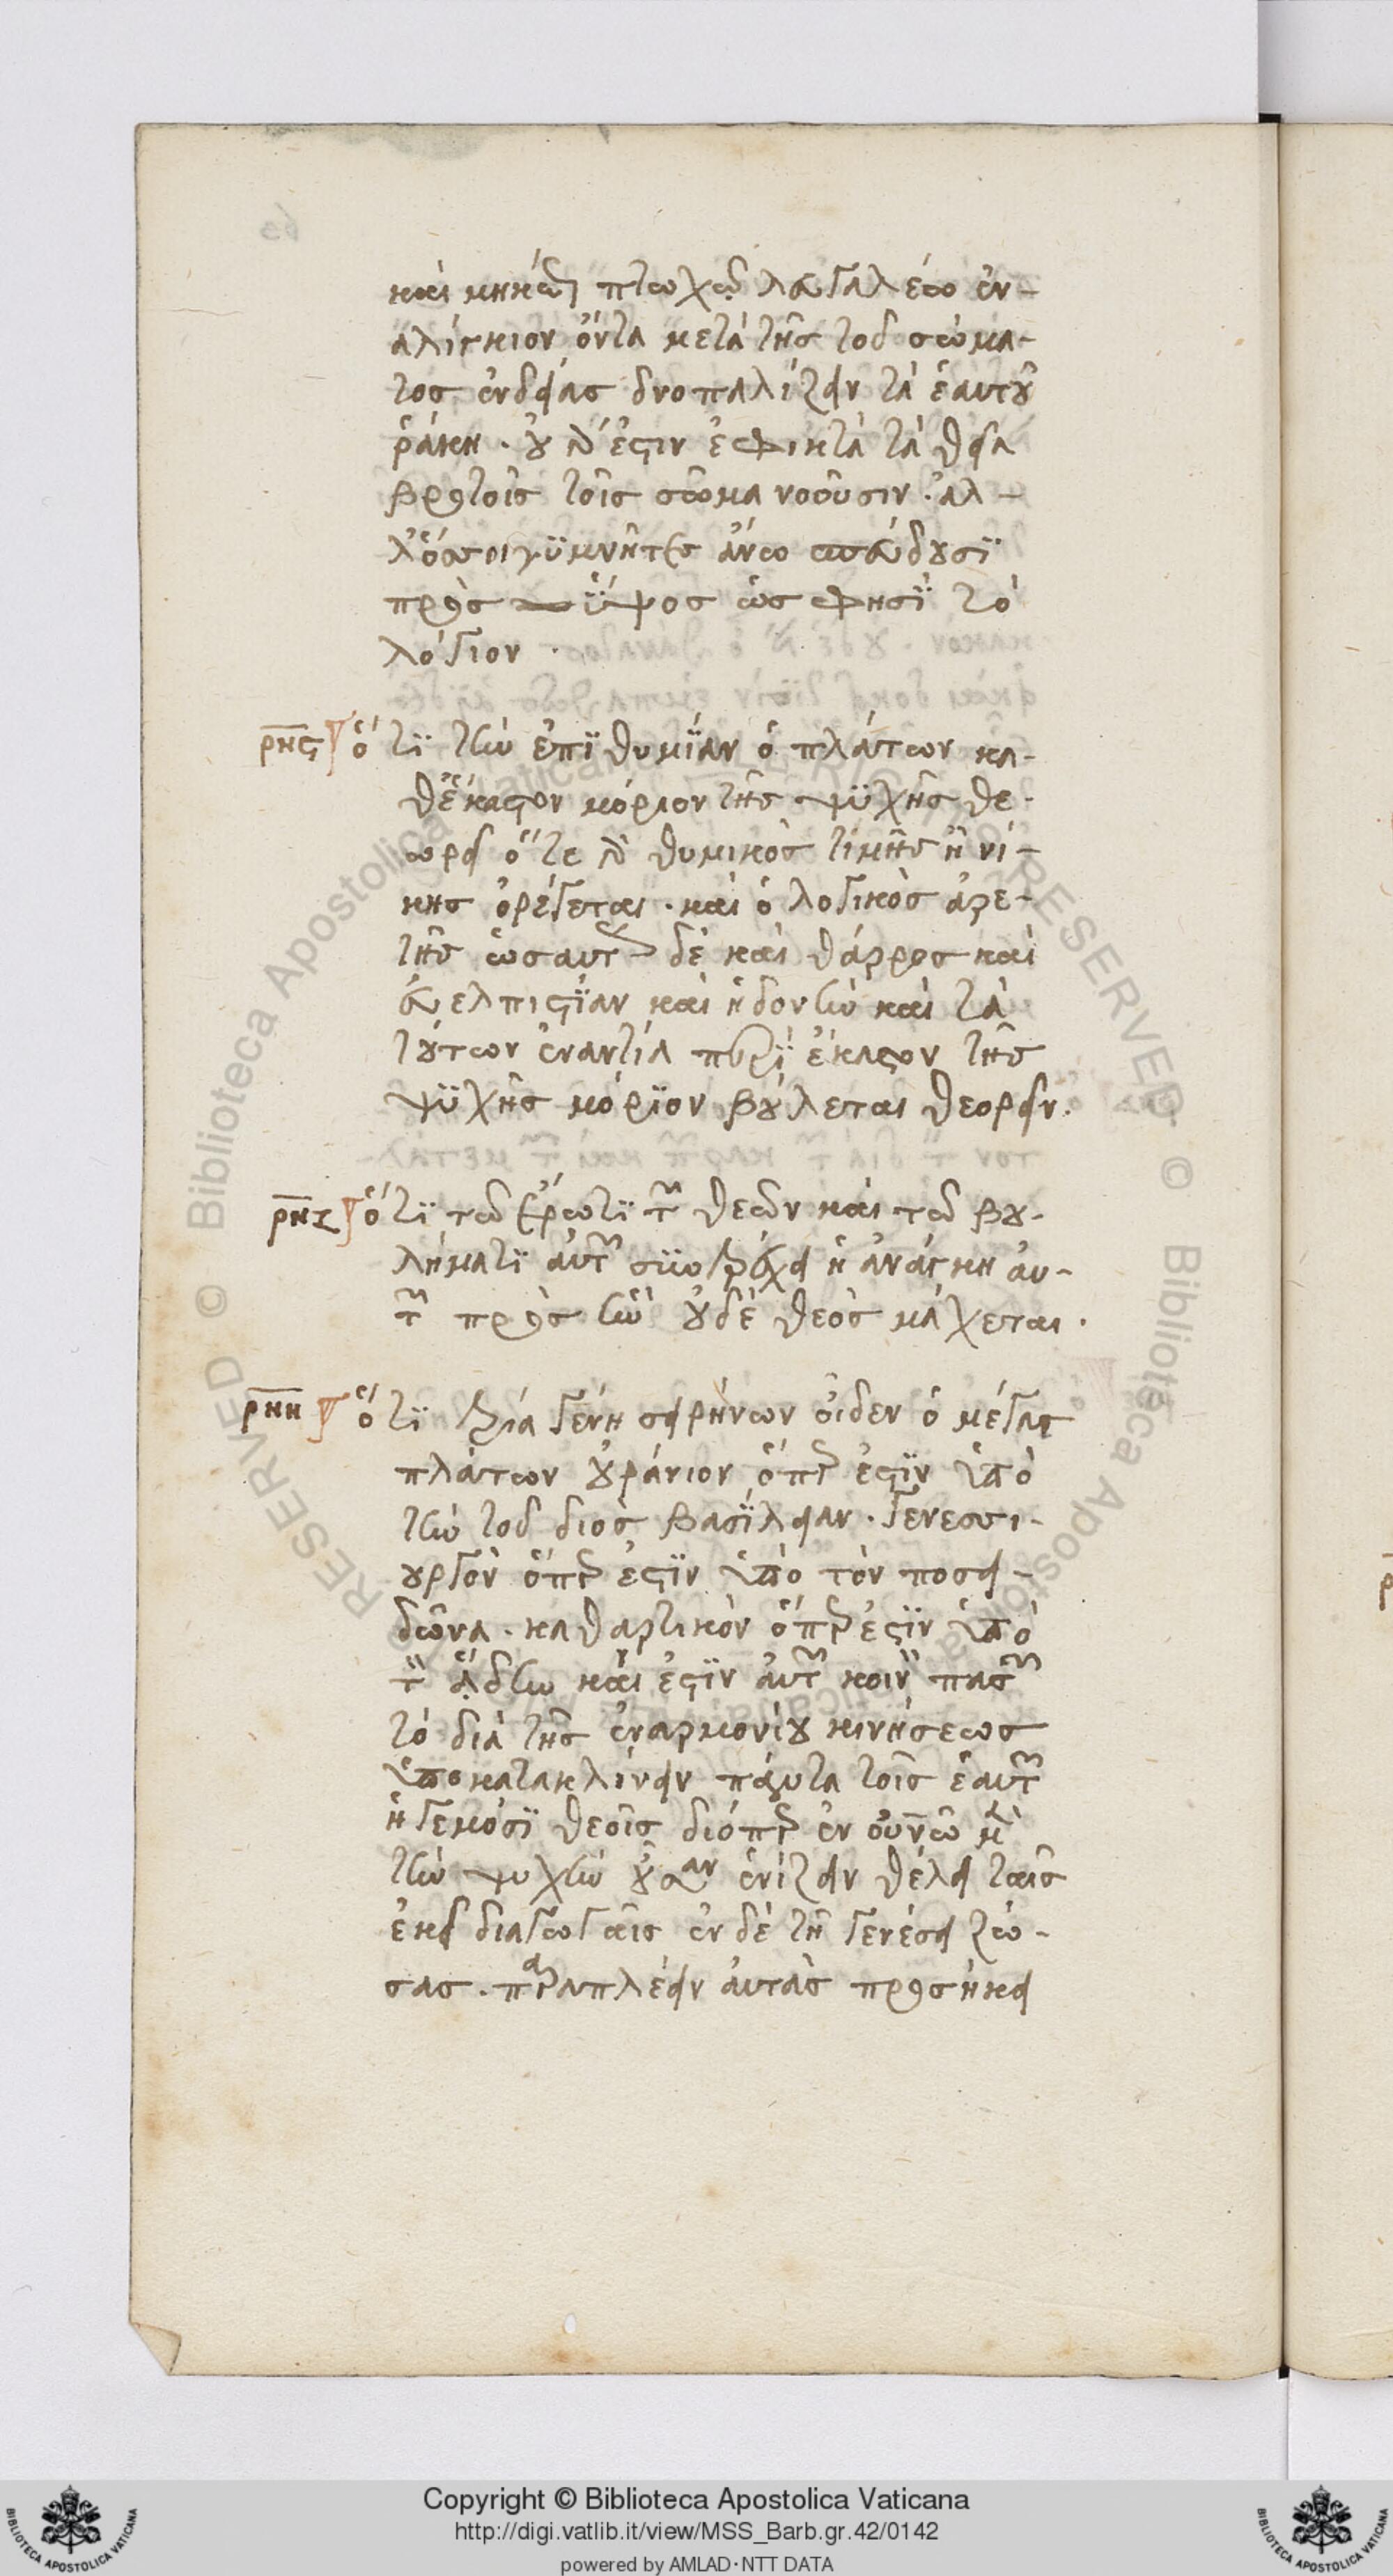 καὶ μηκέτι πτωχῶ λευγαλέω ἐν-
αλίγκιον ὄντα μετὰ τῆς τοῦ σώμα-
τος ἐνδείας δνοπαλίζειν τὰ ἑαυτοῦ
ῥάκη. οὐ γάρ ἐστιν ἐφικτὰ τὰ θεῖα
βροτοῖς τοῖς σῶμα νοοῦσιν. ἀλ-
λ' ὅσοι γϋμνῆτες ἄνω σπεύδουσϊ
πρὸς ὕψος ὥς φησϊ τὸ
λόγιον.
ρνϛ ὅτϊ τὴν ἐπϊθυμΐαν ὁ πλάτων κα-
θ' ἕκαστον μόριον τῆς ψϋχῆς θε-
ωρεῖ ὅτε γὰρ θυμικὸς τιμῆς ἢ νί-
κης ὀρέγεται. καὶ ὁ λογικὸς ἀρε-
τῆς ὡσαύτως δὲ καὶ θάρρος καὶ
εὐελπιστΐαν καὶ ἡδονὴν καὶ τὰ
τούτων ἐναντία περὶ ἕκαστον τῆς
ψϋχῆς μόρϊον βούλεται θεορεῖν.
ρνζ ὅτϊ τῶ ἔρωτϊ τῶν θεῶν καὶ τῶ βου-
λήματϊ αὐτῶν συντρέχει ἡ ἀνάγκη αὐ-
τῶν πρὸς ἣν οὐδὲ θεὸς μάχεται.
ρνη ὅτϊ τρία γένη σειρήνων οἶδεν ὁ μέγας
πλάτων οὐράνιον ὅπερ ἐστϊν ὑπὸ
τὴν τοῦ διὸς βασϊλείαν. γενεσι-
ουργὸν ὅπερ ἐστϊν ὑπὸ τὸν ποσει-
δῶνα. καθαρτικὸν ὅπερ ἐστϊν ὑπὸ
τὸν ἅδην καὶ ἐστϊν αὐτῶν κοινὸν πασῶν
τὸ διὰ τῆς ἐναρμονίου κινήσεως
ὑποκατακλίνειν πάντα τοῖς ἑαυτῶν
ἡγεμόσϊ θεοῖς διόπερ ἐν οὐνῶ μὲν
τὴν ψυχὴν οὖσαν ἑνίζειν θέλει ταῖς
ἐκεῖ διαγωγαῖς ἐν δὲ τῆ γενέσει ζώ-
σας. παραπλέειν αὐτὰς προσήκει